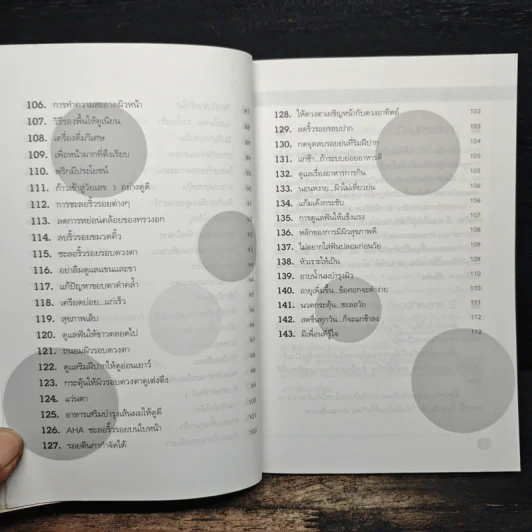 106. การทำความสะอาดผิวหน้า
107. วิธีรองพื้นให้ดูเนียน
108. เครื่องดื่มวิเศษ
109. เพื่อหน้าผากที่ตึงเรียบ
110. พริกมีประโยชน์
111. ก้าวเข้าสู่วัยเลข 3 อย่างดูดี
112. การชะลอริ้วรอยต่างๆ
113. ลดการหย่อนคล้อยของทรวงอก
114. ลบริ้วรอยขมวดคิ้ว
115. ชะลอริ้วรอยรอบดวงตา
116. อย่าลืมดูแลแขนและขา
117. แก้ปัญหาขอบตาดำคล้ำ
118. เครียดบ่อย...แก่เร็ว
119. สุขภาพเล็บ
120. ดูแลฟันให้ขาวตลอดไป
121. ถนอมผิวรอบดวงตา
122. ดูแลริมฝีปากให้ดูอ่อนเยาว์
123. กระตุ้นให้ผิวรอบดวงตาดูเต่งตึง
124. แว่นตา
125. อาหารเสริมบำรุงเส้นผมให้ดูดี
126. AHA ชะลอริ้วรอยบนใบหน้า
127. รอยตีนกากำจัดได้
128. ให้ดวงตาเผชิญหน้ากับดวงอาทิตย์ 102
129. ลดริ้วรอยรอบปาก 103
130. กดจุดลบรอยย่นที่ริมฝีปาก 104
131. แก่ช้า...ถ้าระบบย่อยอาหารดี 105
132. ดูแลเรื่องอาหารการกิน 105
133. นอนหงาย...ผิวไม่เหี่ยวย่น 106
134. แก้มเด้งกระชับ 107
135. การดูแลฟันให้แข็งแรง 108
136. หลักของการมีผิวสุขภาพดี 108
137. ไม่อยากใส่ฟันปลอมก่อนวัย 109
138. หัวเราะให้เป็น 109
139. อาบน้ำนมบำรุงผิว 110
140. อายุเพิ่มขึ้น...ข้อศอกจะดำง่าย 110
141. นวดกระตุ้น...ชะลอวัย 111
142. สดชื่นทุกวัน...ก็จะแก่ช้าลง 112
143. มีเพื่อนที่รู้ใจ 112